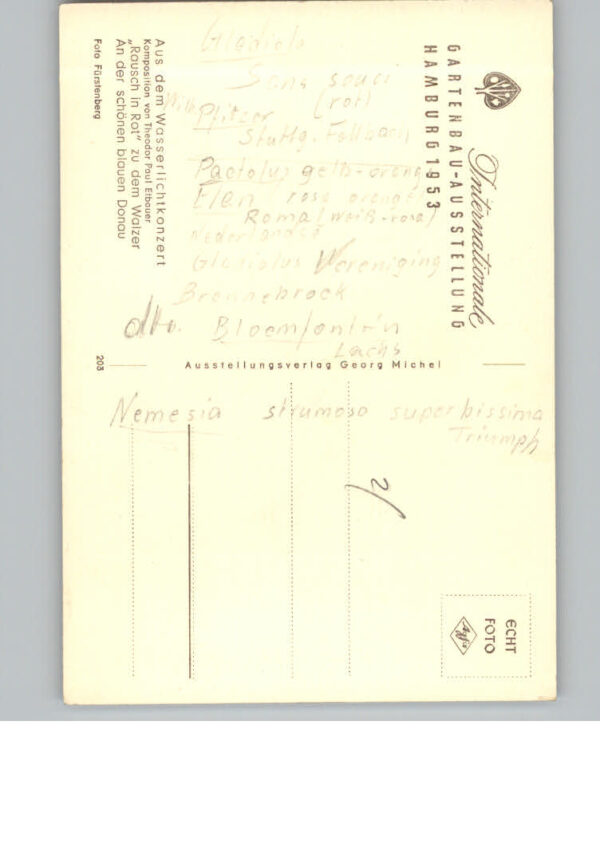 Internationale
GARTENBAU-AUSSTELLUNG
HAMBURG 1953
Aus dem Wasserlichtkonzert
Komposition von Theodor Paul Etbauer
„Rausch in Rot" zu dem Walzer
An der schönen blauen Donau
Foto Fürstenberg
203
Ausstellungsverlag Georg Michel
ECHT
FOTO
Agfa
Sans souci
(rot)
Wilh. Pfitzer
Stuttg. Fellbach
Pactolus gelb-orange
Elan rosa orange
Roma (weiß-rosa)
Nederlandse
Gladiolus Vereniging
Brennebroek
dto. Bloemfontein
Lachs
Nemesia strumosa superbissima
Triumph
2/